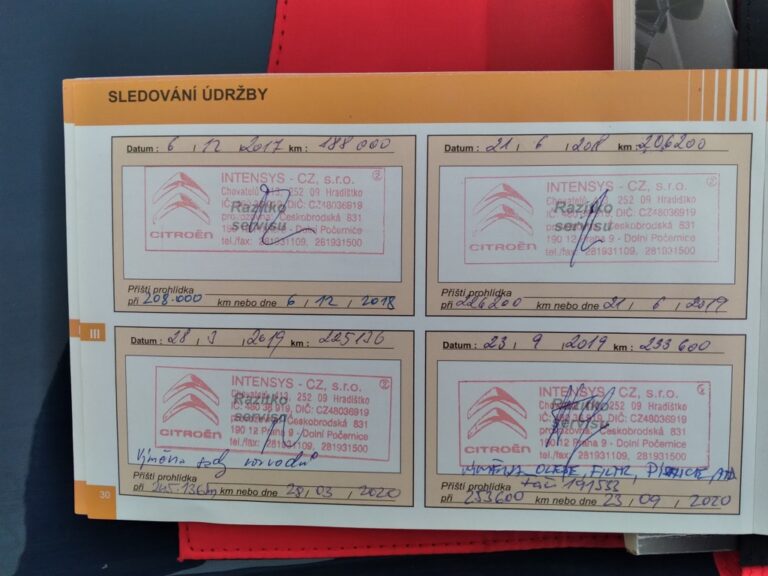 SLEDOVÁNÍ ÚDRŽBY
Datum : 6 , 12 , 2017 km : 188 000
INTENSYS - CZ, s.r.o. 2
Chovatelů 113, 252 09 Hradištko
IČ: 480 36 919, DIČ: CZ48036919
provozovna: Českobrodská 831
190 12 Praha 9 - Dolní Počernice
tel./fax: 281931109, 281931500
CITROËN
Razítko
servisu
Příští prohlídka
při 208.000 km nebo dne 6 , 12 , 2018
Datum : 21 , 6 , 2018 km : 206200
INTENSYS - CZ, s.r.o. 2
252 09 Hradištko
DIČ: CZ48036919
Českobrodská 831
190 12 Praha 9 - Dolní Počernice
tel./fax: 281931109, 281931500
CITROËN
Razítko
servisu
Příští prohlídka
při 226200 km nebo dne 21 , 6 , 2019
III
Datum : 28 , 3 , 2019 km : 225136
INTENSYS - CZ, s.r.o. 2
252 09 Hradištko
IČ: 480 36 919, DIČ: CZ48036919
provozovna: Českobrodská 831
190 12 Praha 9 - Dolní Počernice
tel./fax: 281931109, 281931500
CITROËN
Razítko
servisu
Výměna sady rozvodů
Příští prohlídka
při 245.136 km nebo dne 28 , 03 , 2020
Datum : 23 , 9 , 2019 km : 233 600
INTENSYS - CZ, s.r.o.
252 09 Hradištko
DIČ: CZ48036919
Českobrodská 831
190 12 Praha 9 - Dolní Počernice
tel./fax: 281931109, 281931500
CITROËN
Razítko
servisu
VÝMĚNA OLEJE, FILTR,
Příští prohlídka
při 253600 km nebo dne 23 , 09 , 2020
30